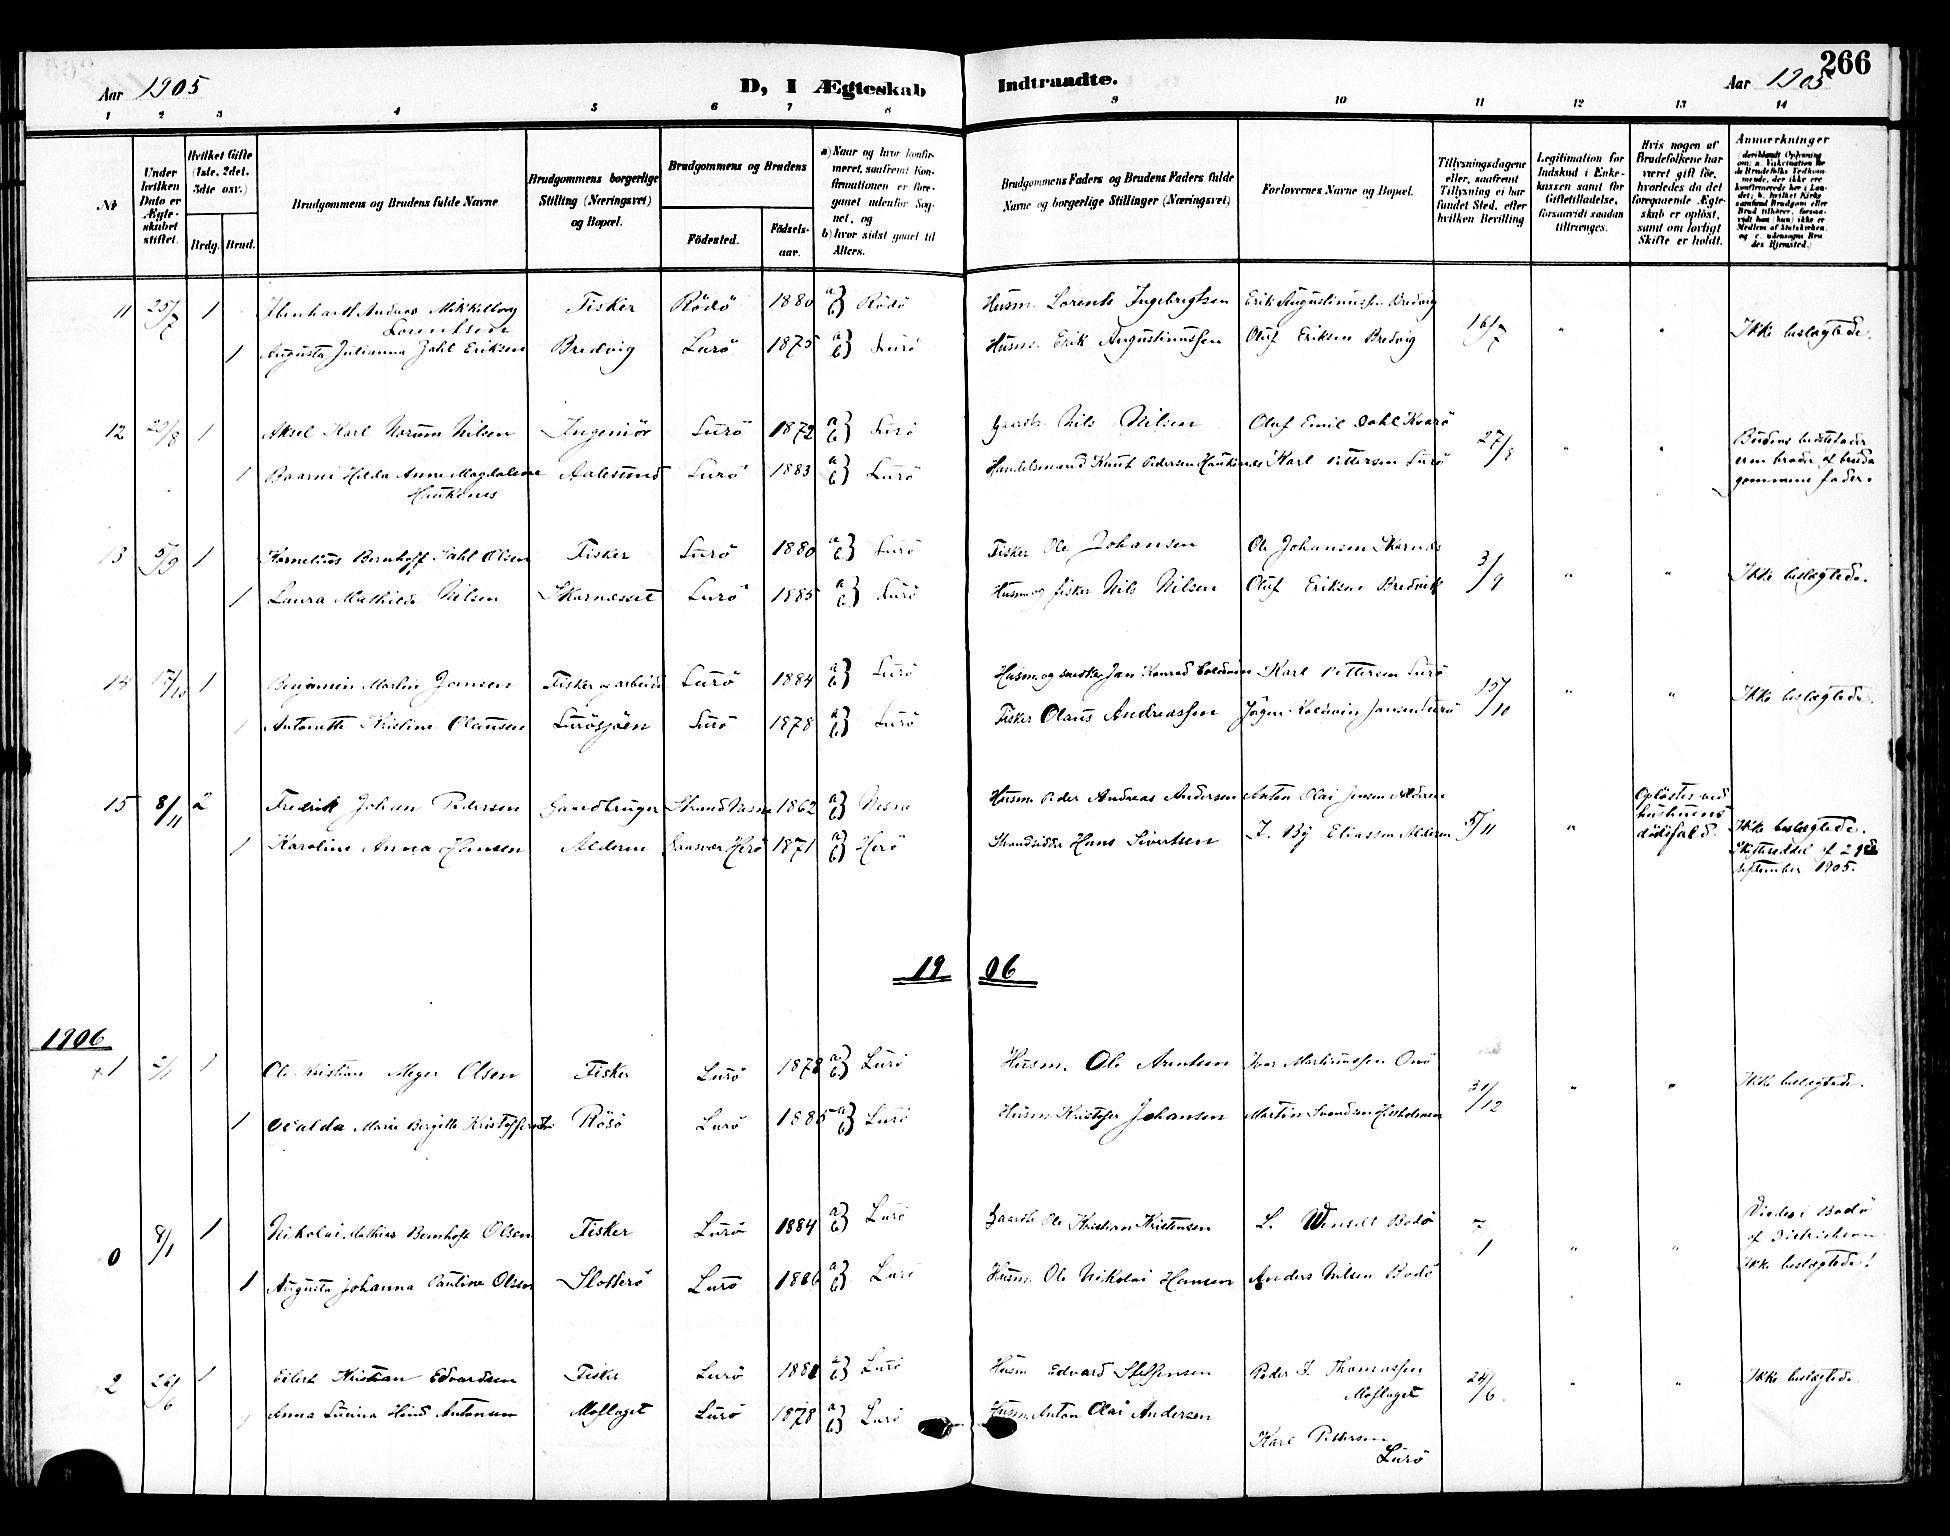 266
Aar 1905
D, I Ægteskab Indtraadte.
Aar 1905
1 2 3 4 5 6 7 8 9 10 11 12 13 14
Nr.
Under hvilken Dato er Ægteskabet stiftet.
Hvilket Gifte (1ste, 2det, 3die osv.)
Brdg. Brud.
Brudgommens og Brudens fulde Navne
Brudgommens borgerlige Stilling (Næringsvei) og Bopæl.
Brudgommens og Brudens
Fødested.
Fødselsaar.
a) Naar og hvor konfirmeret, saafremt Konfirmationen er foregaaet udenfor Sognet, og
b) hvor sidst gaaet til Alters.
Brudgommens Faders og Brudens Faders fulde Navne og borgerlige Stillinger (Næringsvei)
Forlovernes Navne og Bopæl.
Tillysningsdagene eller, saafremt Tillysning ei har fundet Sted, efter hvilken Bevilling
Legitimation for Indskud i Enkekassen samt for Giftetilladelse, forsaavidt saadan tiltrænges.
Hvis nogen af Brudefolkene har været gift før, hvorledes da det foregaaende Ægteskab er opløst, samt om lovligt Skifte er holdt.
Anmærkninger
11 25/7 1 Andreas Mikkelborg Lorentsen Fisker Rödö 1880 a) b) Rödö Husm. Lorents Ingebrigtsen Erik Augustinussen Bredvig 16/7 " " Ikke beslægtede.
1 Augusta Julianna Dahl Eriksen Bredvig Lurö 1875 a) b) Lurö Husm. Erik Augustinussen Oluf Eriksen Bredvig
12 29/8 1 Aksel Karl Norum Nilsen Ingeniör Lurö 1872 a) b) Lurö Gaardbr. Nils Nilsen Oluf Emil Dahl Kvarö 27/8 " "
1 Hilda Anna Magdalene Haukenes Aalesund Lurö 1883 a) b) Lurö Handelsmand Knut Pedersen Haukenes Karl Pettersen Lurö
Brudens bedstefader er en broder af brudgommens fader.
13 5/9 1 Kornelius Bernhoff Dahl Olsen Fisker Lurö 1880 a) b) Lurö Fisker Ole Johansen Ole Johansen Skarnes 3/9 " " Ikke beslægtede.
1 Laura Mathilde Nilsen Skarnesset Lurö 1885 a) b) Lurö Husm. og fisker Nils Nilsen Oluf Eriksen Bredvik
14 17/10 1 Benjamin Martin Jansen Fisker og arbeid. Lurö 1884 a) b) Lurö Husm. og Jan Konrad Karl Pettersen Lurö 15/10 " " Ikke beslægtede.
1 Antonette Kristine Olausen Lurösjöen Lurö 1878 a) b) Lurö Fisker Olaus Andreassen Jörgen Jansen Lurö
15 8/11 2 Fredrik Johan Pedersen Gaardbruger Strand Nesne 1862 a) b) Nesne Husm. Peder Andreas Andersen Anton Olai Jensen Aldern 5/11 " Oplöstes ved hustruens dödsfald. Ikke beslægtede.
1 Karoline Anna Hansen Alderen Gaasvær Herö 1871 a) b) Herö Strandsidder Hans Sivertsen J. By Eliassen Alderen
Skifteseddel af 29de september 1905.
1906
1906
1 2/1 1 Ole Kristian Meyer Olsen Fisker Lurö 1878 a) b) Lurö Husm. Ole Arntsen Ivar Martinussen Onö 31/12 " " Ikke beslægtede.
1 Marie Bergitte Rösö Lurö 1885 a) b) Lurö Husm. Kristofer Johansen Martin Svendsen
0 8/1 1 Nikolai Mathias Bernhoft Olsen Fisker Lurö 1884 a) b) Lurö Gaardbr. Ole Kristian Kristensen L. Bodö 7/1 " " Viedes i Bodö af
1 Augusta Johanna Pauline Olsen Lurö 1886 a) b) Lurö Husm. Ole Nikolai Hansen Anders Nilsen Bodö Ikke beslægtede!
2 26/6 1 Eilert Kristian Edvardsen Fisker Lurö 1881 a) b) Lurö Husm. Edvard Steffensen Peder J. Thomassen Moflaget 24/6. " " Ikke beslægtede.
1 Anna Antonsen Moflaget Lurö 1878 a) b) Lurö Husm. Anton Olai Andersen
Karl Pettersen Lurö